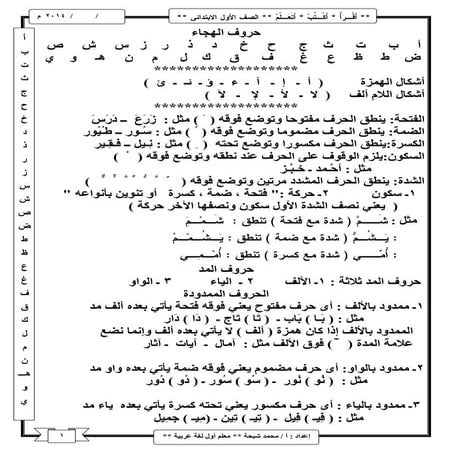 == أقـرأ - أكتـب - أتعـلم == الصف الأول الابتدائى == / / ٢٠١٤ م
حروف الهجاء
أ ب ت ث ج ح خ د ذ ر ز س ش ص
ض ط ظ ع غ ف ق ك ل م ن هـ و ي
********************
أشكال الهمزة ( أ - إ - آ - ء - ؤ - ئـ - ئ )
أشكال اللام ألف ( لا - لأ - لإ - لآ )
********************
الفتحة: ينطق الحرف مفتوحا وتوضع فوقه ( َ ) مثل : زَرَعَ – دَرَسَ
الضمة: ينطق الحرف مضموما وتوضع فوقه ( ُ ) مثل : سُـور – طُـيُور
الكسرة:ينطق الحرف مكسورا وتوضع تحته ( ِ ) مثل : نِـيل – فَـقِـير
السكون:يلزم الوقوف على الحرف عند نطقه وتوضع فوقه ( ْ )
مثل : أحْـمد - خـبْـز
الشدة: ينطق الحرف المشدد مرتين وتوضع فوقه
١- سكون ٢- حركة :" فتحة ، ضمة ، كسرة أو تنوين بأنواعه "
( يعني نصف الشدة الأول سكون ونصفها الأخر حركة )
مثل : شَـمَّ ( شدة مع فتحة ) تنطق : شَـمْـمَ
: يَـشُـمُّ ( شدة مع ضمة ) تنطق : يَـشُـمْـمُ
: أُمِّـي ( شدة مع كسرة ) تنطق : أُمْـمِـي
حروف المد
حروف المد ثلاثة : ١- الألف ٢- الياء ٣- الواو
الحروف الممدودة
١- ممدود بالألف : أى حرف مفتوح يعني فوقه فتحة يأتي بعده ألف مد
مثل : ( بَـا ) بَاب - ( تَا ) تَاج - ( دَا ) دَار
الممدود بالألف إذا كان همزة ( ألف ) لا يأتي بعده ألف وإنما نضع
علامة المدة ( ~ ) فوق الألف مثل : آمال - آيات - آثار
٢- ممدود بالواو: أى حرف مضموم يعني فوقه ضمة يأتي بعده واو مد
مثل : ( نُو ) نُور - ( سُو ) سُور - ( دُو ) دُور
٣- ممدود بالياء : أى حرف مكسور يعني تحته كسرة يأتي بعده ياء مد
مثل : ( فِـي ) فِيل - ( تِي ) تِين - ( مِـي ) جميل
أ
ب
ت
ث
ج
ح
خ
د
ذ
ر
ز
س
ش
ص
ض
ط
ظ
ع
غ
ف
ق
ك
ل
م
ن
هـ
و
ي
إعداد : أ / محمد شيحة == معلم أول لغة عربية ==
١